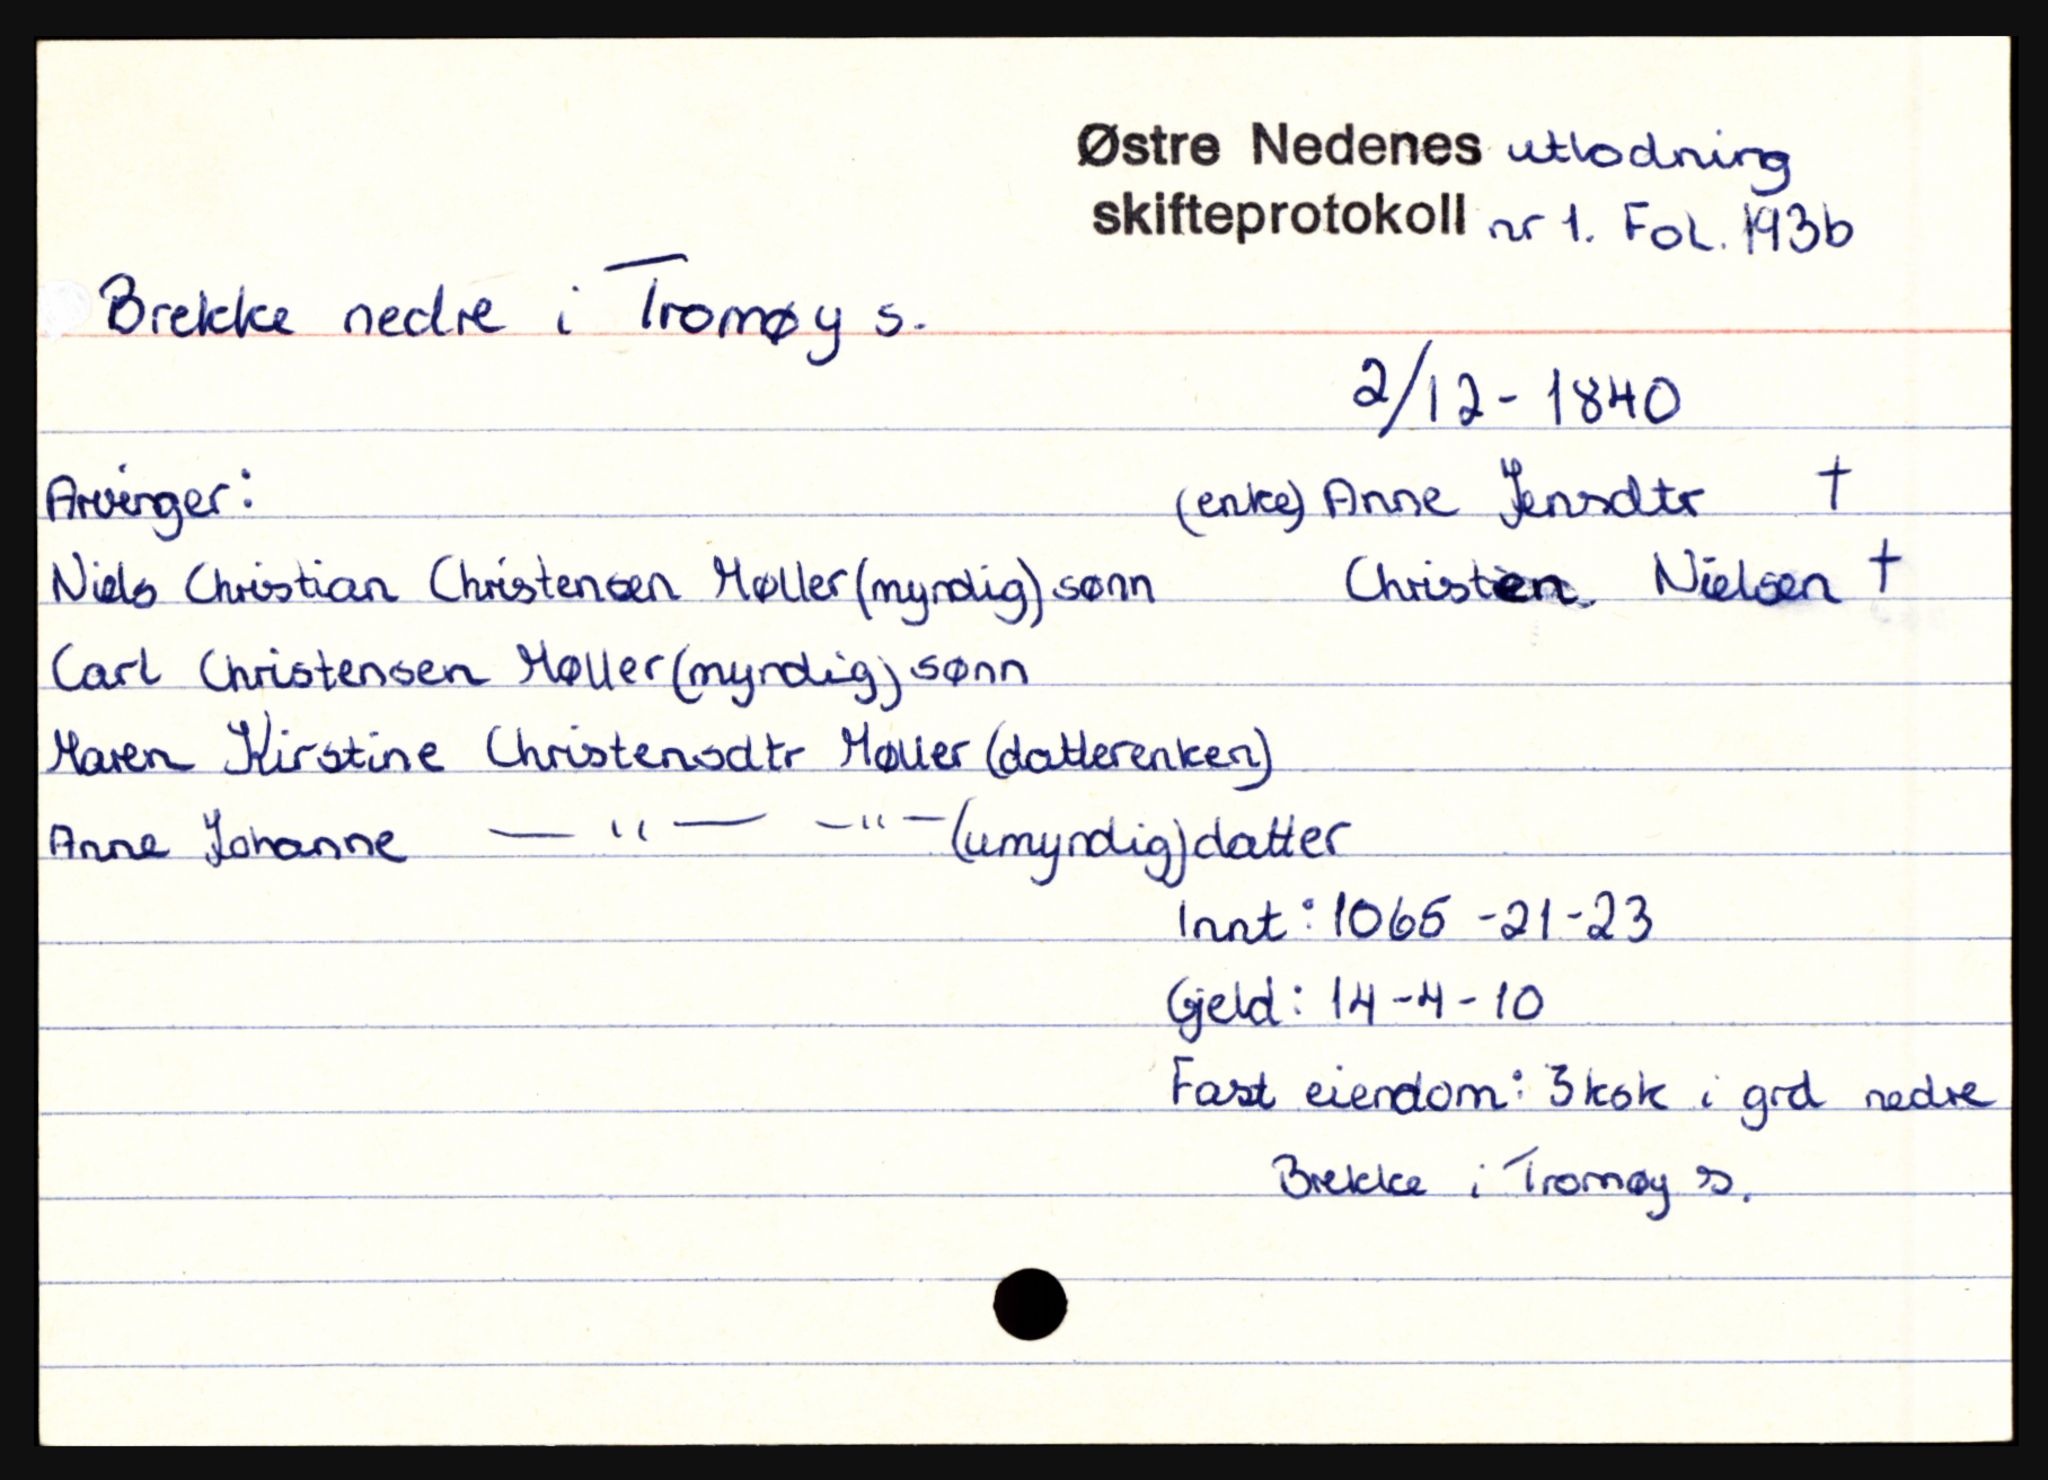 Østre Nedenes utlodning
skifteprotokoll nr 1. Fol. 193b
Brekke nedre i Tromøy s.
2/12 - 1840
Arvinger: (enke) Anne Jensdtr †
Niels Christian Christensen Møller (myndig) sønn Christen Nielsen †
Carl Christensen Møller (myndig) sønn
Maren Kirstine Christensdtr Møller (datterenken)
Anne Johanne — " — — " — (umyndig) datter
Innt: 1065 - 21 - 23
Gjeld: 14 - 4 - 10
Fast eiendom: 3 ksk i grd nedre
Brekke i Tromøy s.